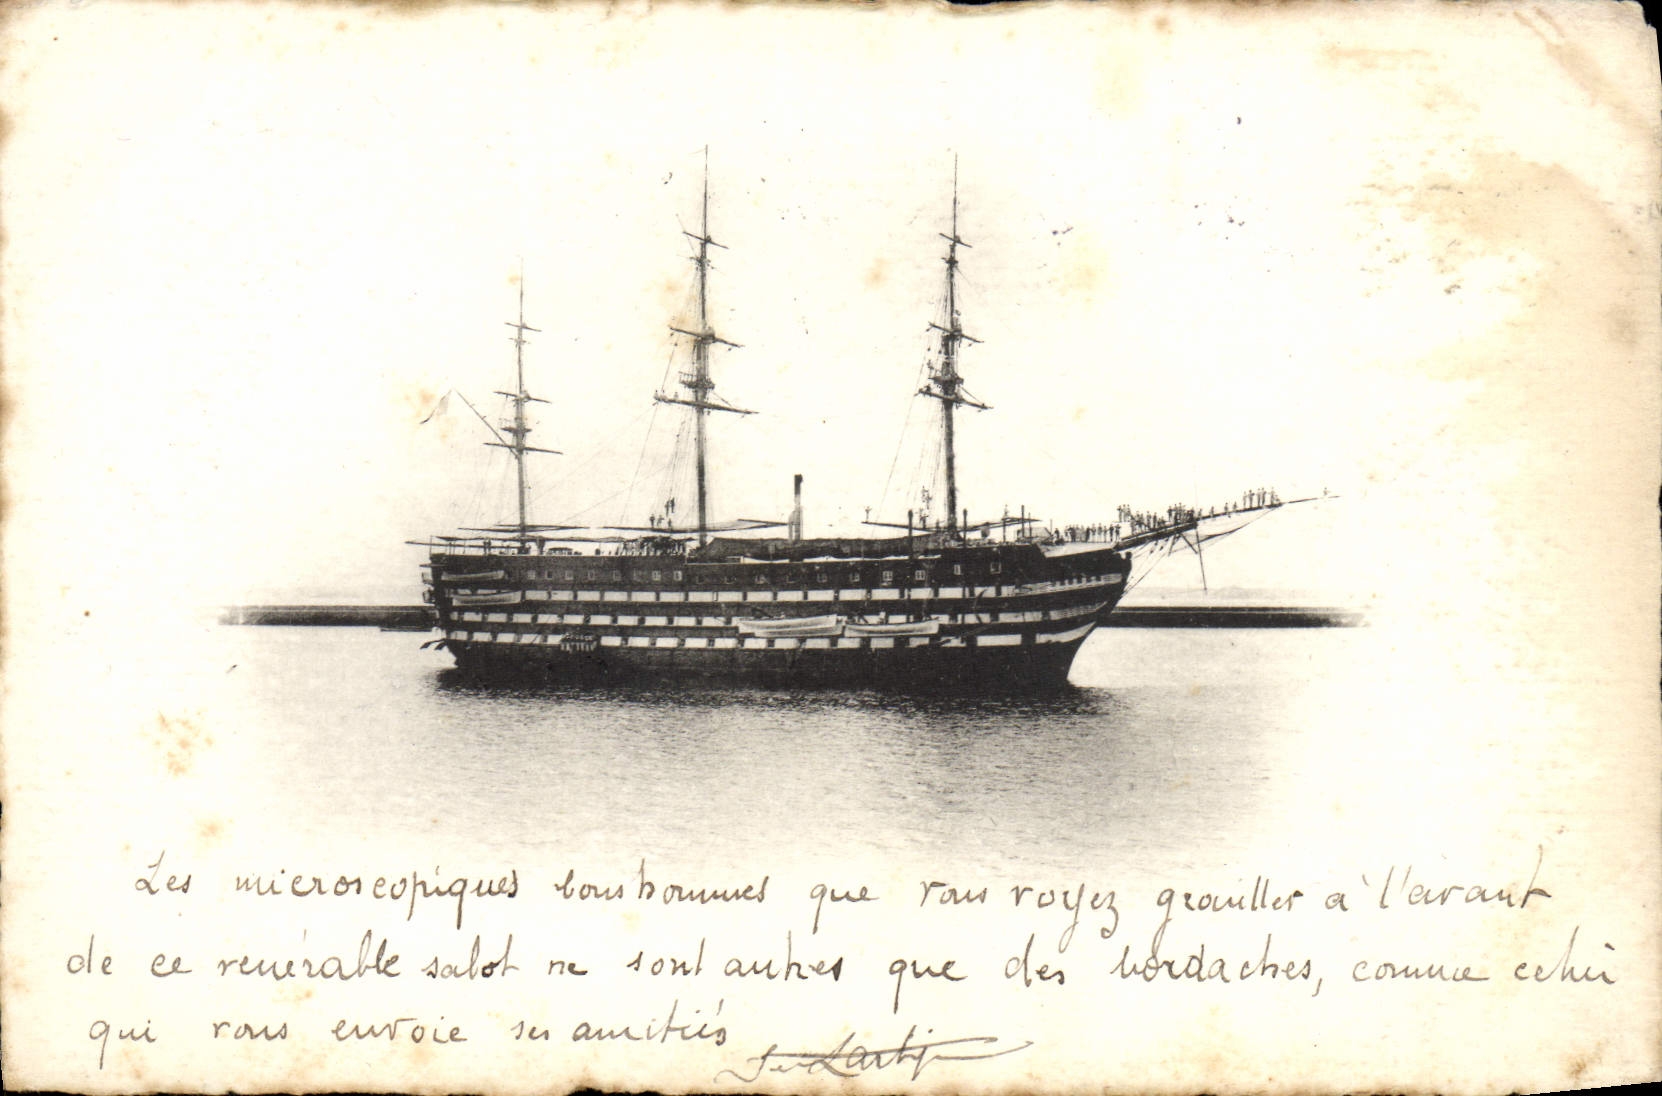 Les microscopiques bonshommes que vous voyez grouiller à l'avant
de ce vénérable sabot ne sont autres que des bordaches, comme celui
qui vous envoie ses amitiés